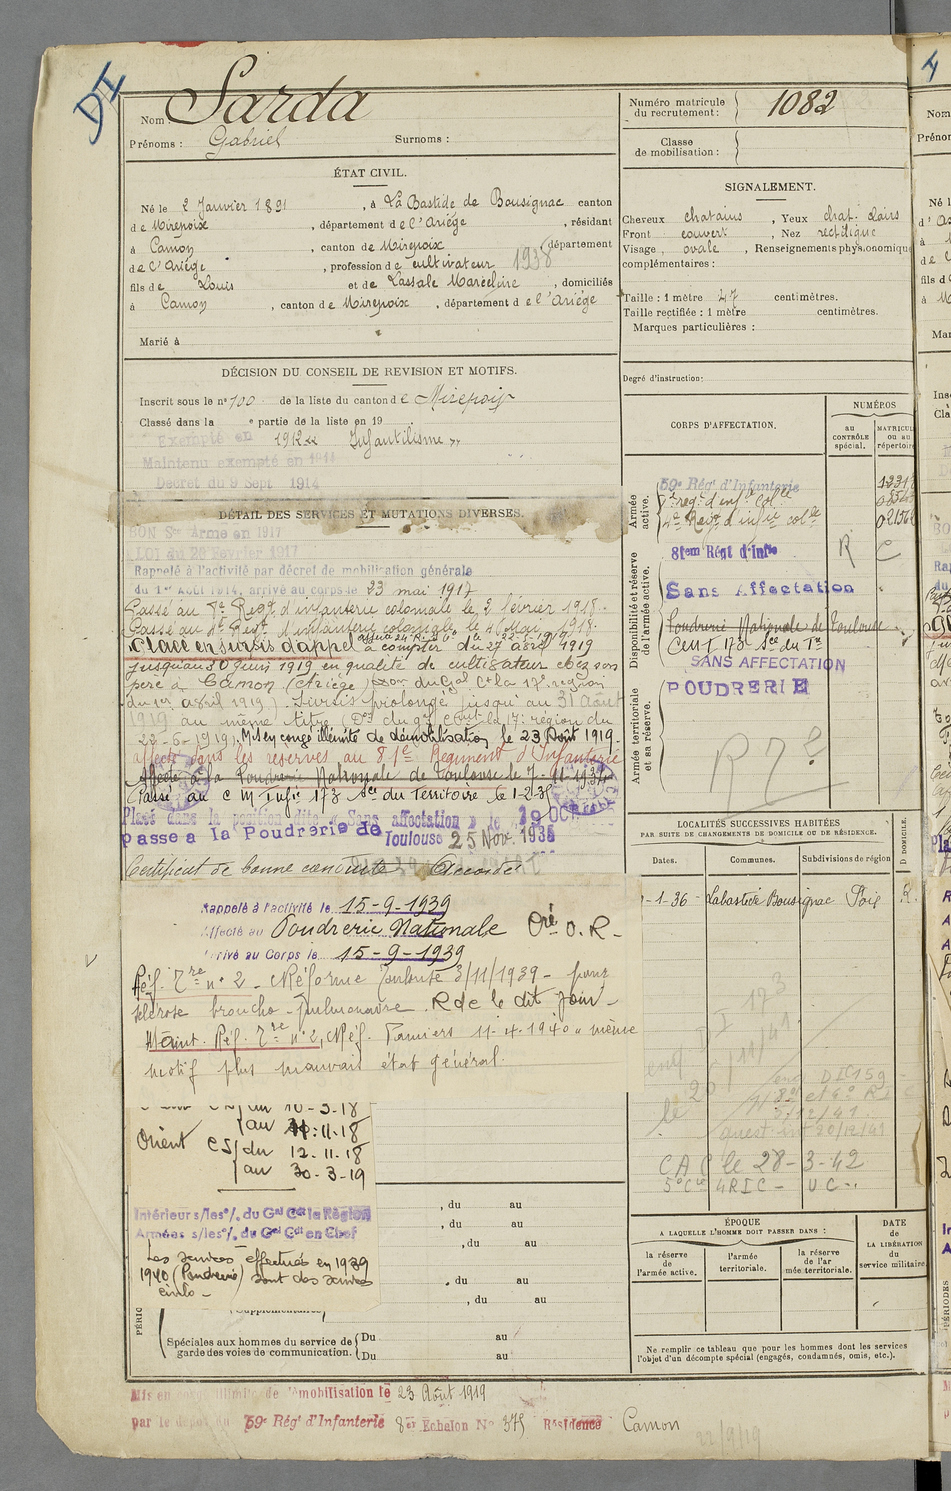 DI
Nom : Sarda
Prénoms : Gabriel Surnoms :
Numéro matricule du recrutement : 1082
Classe de mobilisation :
ÉTAT CIVIL.
Né le 2 Janvier 1891, à La Bastide de Bousignac canton
de Mirepoix, département de l'Ariége, résidant
à Camon, canton de Mirepoix, département
de l'Ariége, profession de cultivateur 1938
fils de Louis et de Lassale Marceline, domiciliés
à Camon, canton de Mirepoix, département de l'Ariége
Marié à
SIGNALEMENT.
Cheveux chatains, Yeux chat. clairs
Front couvert, Nez rectiligne
Visage ovale, Renseignements physionomique
complémentaires :
Taille : 1 mètre 47 centimètres.
Taille rectifiée : 1 mètre centimètres.
Marques particulières :
Degré d'instruction :
DÉCISION DU CONSEIL DE REVISION ET MOTIFS.
Inscrit sous le n° 100 de la liste du canton de Mirepoix
Classé dans la e partie de la liste en 19
Exempté en 1912 Infantilisme
Maintenu exempté en 1914
Décret du 9 Sept 1914
DÉTAIL DES SERVICES ET MUTATIONS DIVERSES.
BON Sce Armé en 1917
LOI du 20 Février 1917
Rappelé à l'activité par décret de mobilisation générale
du 1er Août 1914, arrivé au corps le 23 mai 1917
Passé au 7e Regt d'infanterie coloniale le 2 février 1918.
Passé au 4e Regt d'infanterie coloniale le
Placé en sursis d'appel à compter du 27 avril 1919
jusqu'au 30 juin 1919 en qualité de cultivateur chez son
père à Camon (Ariége) du Gal Ct la 17e région
du 1er avril 1919). Sursis prolongé jusqu'au 31 Août
1919 au même titre (Don du gal Cmt la 17e région du
22-6-1919). Mis en congé illimité de démobilisation le 23 Août 1919.
affecté dans les réserves au 81e Régiment d'Infanterie
Affecté à la Poudrerie Nationale de Toulouse le 7-11-1934
Passé au C M Infie 173 Sce du Territoire le 1-2-35
Placé dans la position dite « Sans affectation » le 19 OCT
passé à la Poudrerie de Toulouse 25 Nov. 1935
Certificat de bonne conduite Accordé
Rappelé à l'activité le 15-9-1939
Affecté au Poudrerie Nationale O.R-
Arrivé au Corps le 15-9-1939
Réf. n° 2 - Réforme Toulouse 3/11/1939 - pour
sclérose broncho-pulmonaire. R de le dit jour -
Maint. Réf. n° 2, Réf. Pamiers 11-4-1940 « même
motif plus mauvais état général.
au 10-3-18
au 11-11-18
Orient CS du 12-11-18
au 30-3-19
Intérieur s/les o/. du Gal Cdt la Région
Armées s/les o/. du Gal Cdt en Chef
Les services effectués en 1939
1940 (Poudrerie) sont des services
civils -
, du au
, du au
, du au
, du au
, du au
PÉRIO
(Supplémentaires
Spéciales aux hommes du service de garde des voies de communication. Du au
Du au
Mis en congé illimité de démobilisation le 23 Août 1919
par le dépôt du 59e Régt d'Infanterie 8er Echelon No 375 Résidence Camon
22/9/19
CORPS D'AFFECTATION.
NUMÉROS
au CONTRÔLE spécial.
MATRICULE ou au répertoire
Armée active.
59e Régt d'Infanterie
7e regt d'infie Colle
4e Regt d'infie colle
Disponibilité et réserve de l'armée active.
81em Régt d'Infie R C
Sans Affectation
Poudrerie Nationale de Toulouse
C M I 173 Sce du Tre
SANS AFFECTATION
Armée territoriale et sa réserve.
POUDRERIE
R 7 e
LOCALITÉS SUCCESSIVES HABITÉES
PAR SUITE DE CHANGEMENTS DE DOMICILE OU DE RÉSIDENCE.
Dates. Communes. Subdivisions de région D. DOMICILE.
-1-36 Labastide Bousignac Foix R.
173
le 20/11/41
DI 159
2/12/41
20/12/41
CAC le 28-3-42
5e Cie 4 RIC - UC -
ÉPOQUE
A LAQUELLE L'HOMME DOIT PASSER DANS :
la réserve de l'armée active.
l'armée territoriale.
la réserve de l'armée territoriale.
DATE de LA LIBÉRATION du service militaire
Ne remplir ce tableau que pour les hommes dont les services
l'objet d'un décompte spécial (engagés, condamnés, omis, etc.).